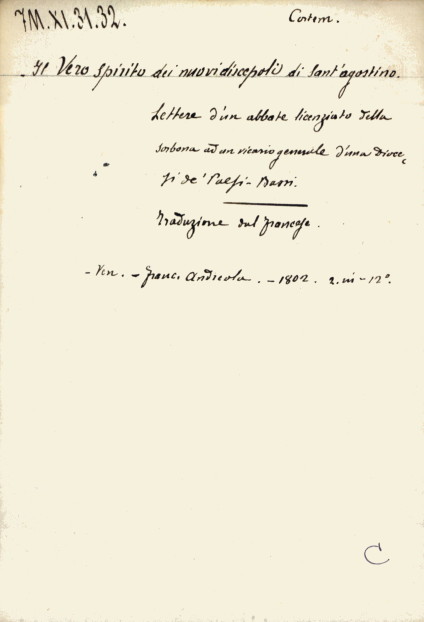 7M.XI.31.32.
Contem.
Il Vero Spirito dei nuovi discepoli di Sant'agostino.
Lettere d'un abbate licenziato della
sorbona ad un vicario generale d'una Dioce
si de' Paesi-Bassi.
Traduzione dal francese.
- Ven. - Franc. Andreola. - 1802. 2. in - 12°.
C